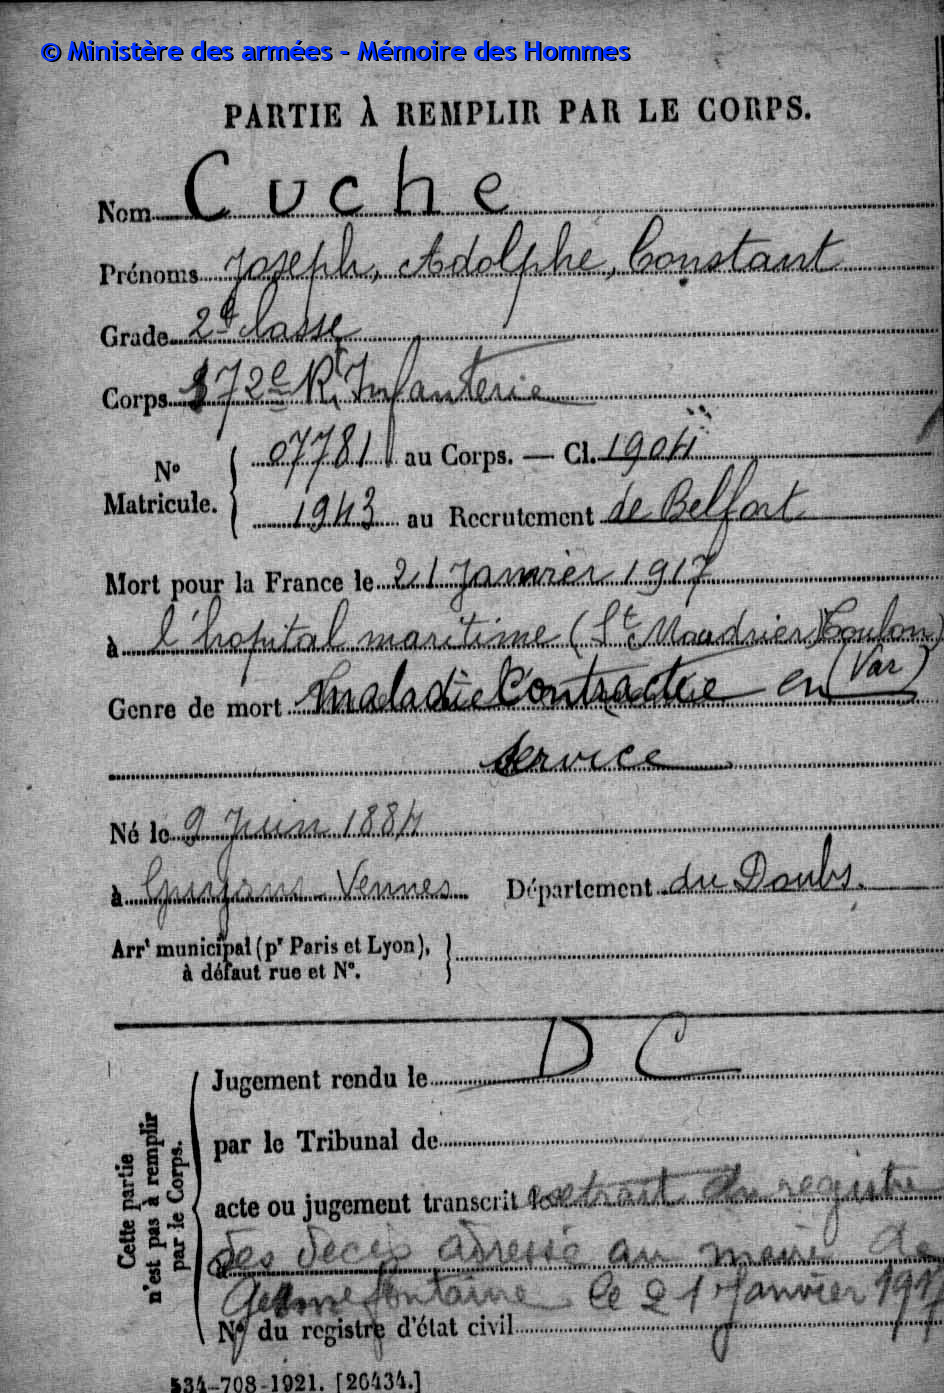 © Ministère des armées - Mémoire des Hommes
PARTIE À REMPLIR PAR LE CORPS.
Nom Cuche
Prénoms Joseph, Adolphe, Constant
Grade 2e classe
Corps 172e Rt Infanterie
N° Matricule. { 07781 au Corps. — Cl. 1904
1943 au Recrutement de Belfort
Mort pour la France le 21 Janvier 1917
à l'hopital maritime (St Mandrier) Toulon)
(Var)
Genre de mort Maladie Contractée en
service
Né le 9 Juin 1884
à Guyans-Vennes Département du Doubs.
Arrt municipal (pr Paris et Lyon), à défaut rue et N°. }
Cette partie n'est pas à remplir par le Corps.
DC
Jugement rendu le
par le Tribunal de
acte ou jugement transcrit le extrait du registre
des décès adressé au maire de
fontaine le 21 Janvier 1917
N° du registre d'état civil
534-708-1921. [26434.]